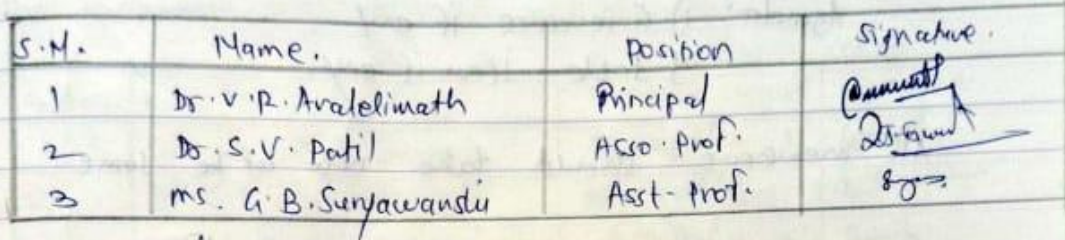 S.N. Name. Position Signature.
1 Dr. V. R. Aralelimath Principal
2 Dr. S. V. Patil Asso. Prof.
3 Ms. G. B. Suryawanshi Asst- Prof.